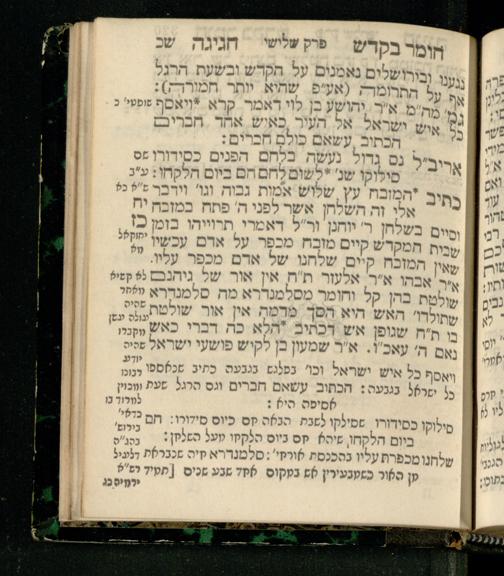 חומר בקדש פרק שלישי חגיגה שכ
נגענו ובירושלים נאמנים על הקדש ובשעת הרגל
אף על התרומה (אע"פ שהיא יותר חמורה):
גמ' מה"מ א"ר יהושע בן לוי דאמר קרא *ויאסף
שופטי' כ
כל איש ישראל אל העיר כאיש אחד חברים
הכתוב עשאם כולם חברים:
אריב"ל נס גדול נעשה בלחם הפנים כסידורו
שס
סילוקו שנ' *לשום לחם חם ביום הלקחו:
ש"א כא
כתיב *המזבח עץ שלוש אמות גבוה וגו' וידבר
אלי זה השלחן אשר לפני ה' פתח במזבח
וסיים בשלחן ר' יוחנן ור"ל דאמרי תרוייהו בזמן
יחזקאל
מא
שבית המקדש קיים מזבח מכפר על אדם עכשיו
שאין המזבח קיים שלחנו של אדם מכפר עליו.
א"ר אבהו א"ר אלעזר ת"ח אין אור של גיהנם
שולטת בהן קל וחומר מסלמנדרא מה סלמנדרא
שתולדו' האש היא הסך מדמה אין אור שולטת
בו ת"ח שגופן אש דכתיב *הלא כה דברי כאש
נאם ה' עאכ"ו. א"ר שמעון בן לקיש פושעי ישראל
ויאסף כל איש ישראל וכו' בפלגש בגבעה כתיב שנאספו
כל ישראל בגבעה: הכתוב עשאם חברים וגם הרגל שעת
אסיפה היא:
סילוקו כסידורו שסילקו לשבת הבאה חם כיום סידורו: חם
ביום הלקחו, שיהא חם ביום הלקחו מעל השלחן:
שלחנו מכפרת עליו בהכנסת אורחי': סלמנדרא חיה שנבראת
מן האור כשמבעירין אש במקום אחד שבע שנים
ירמיה כג